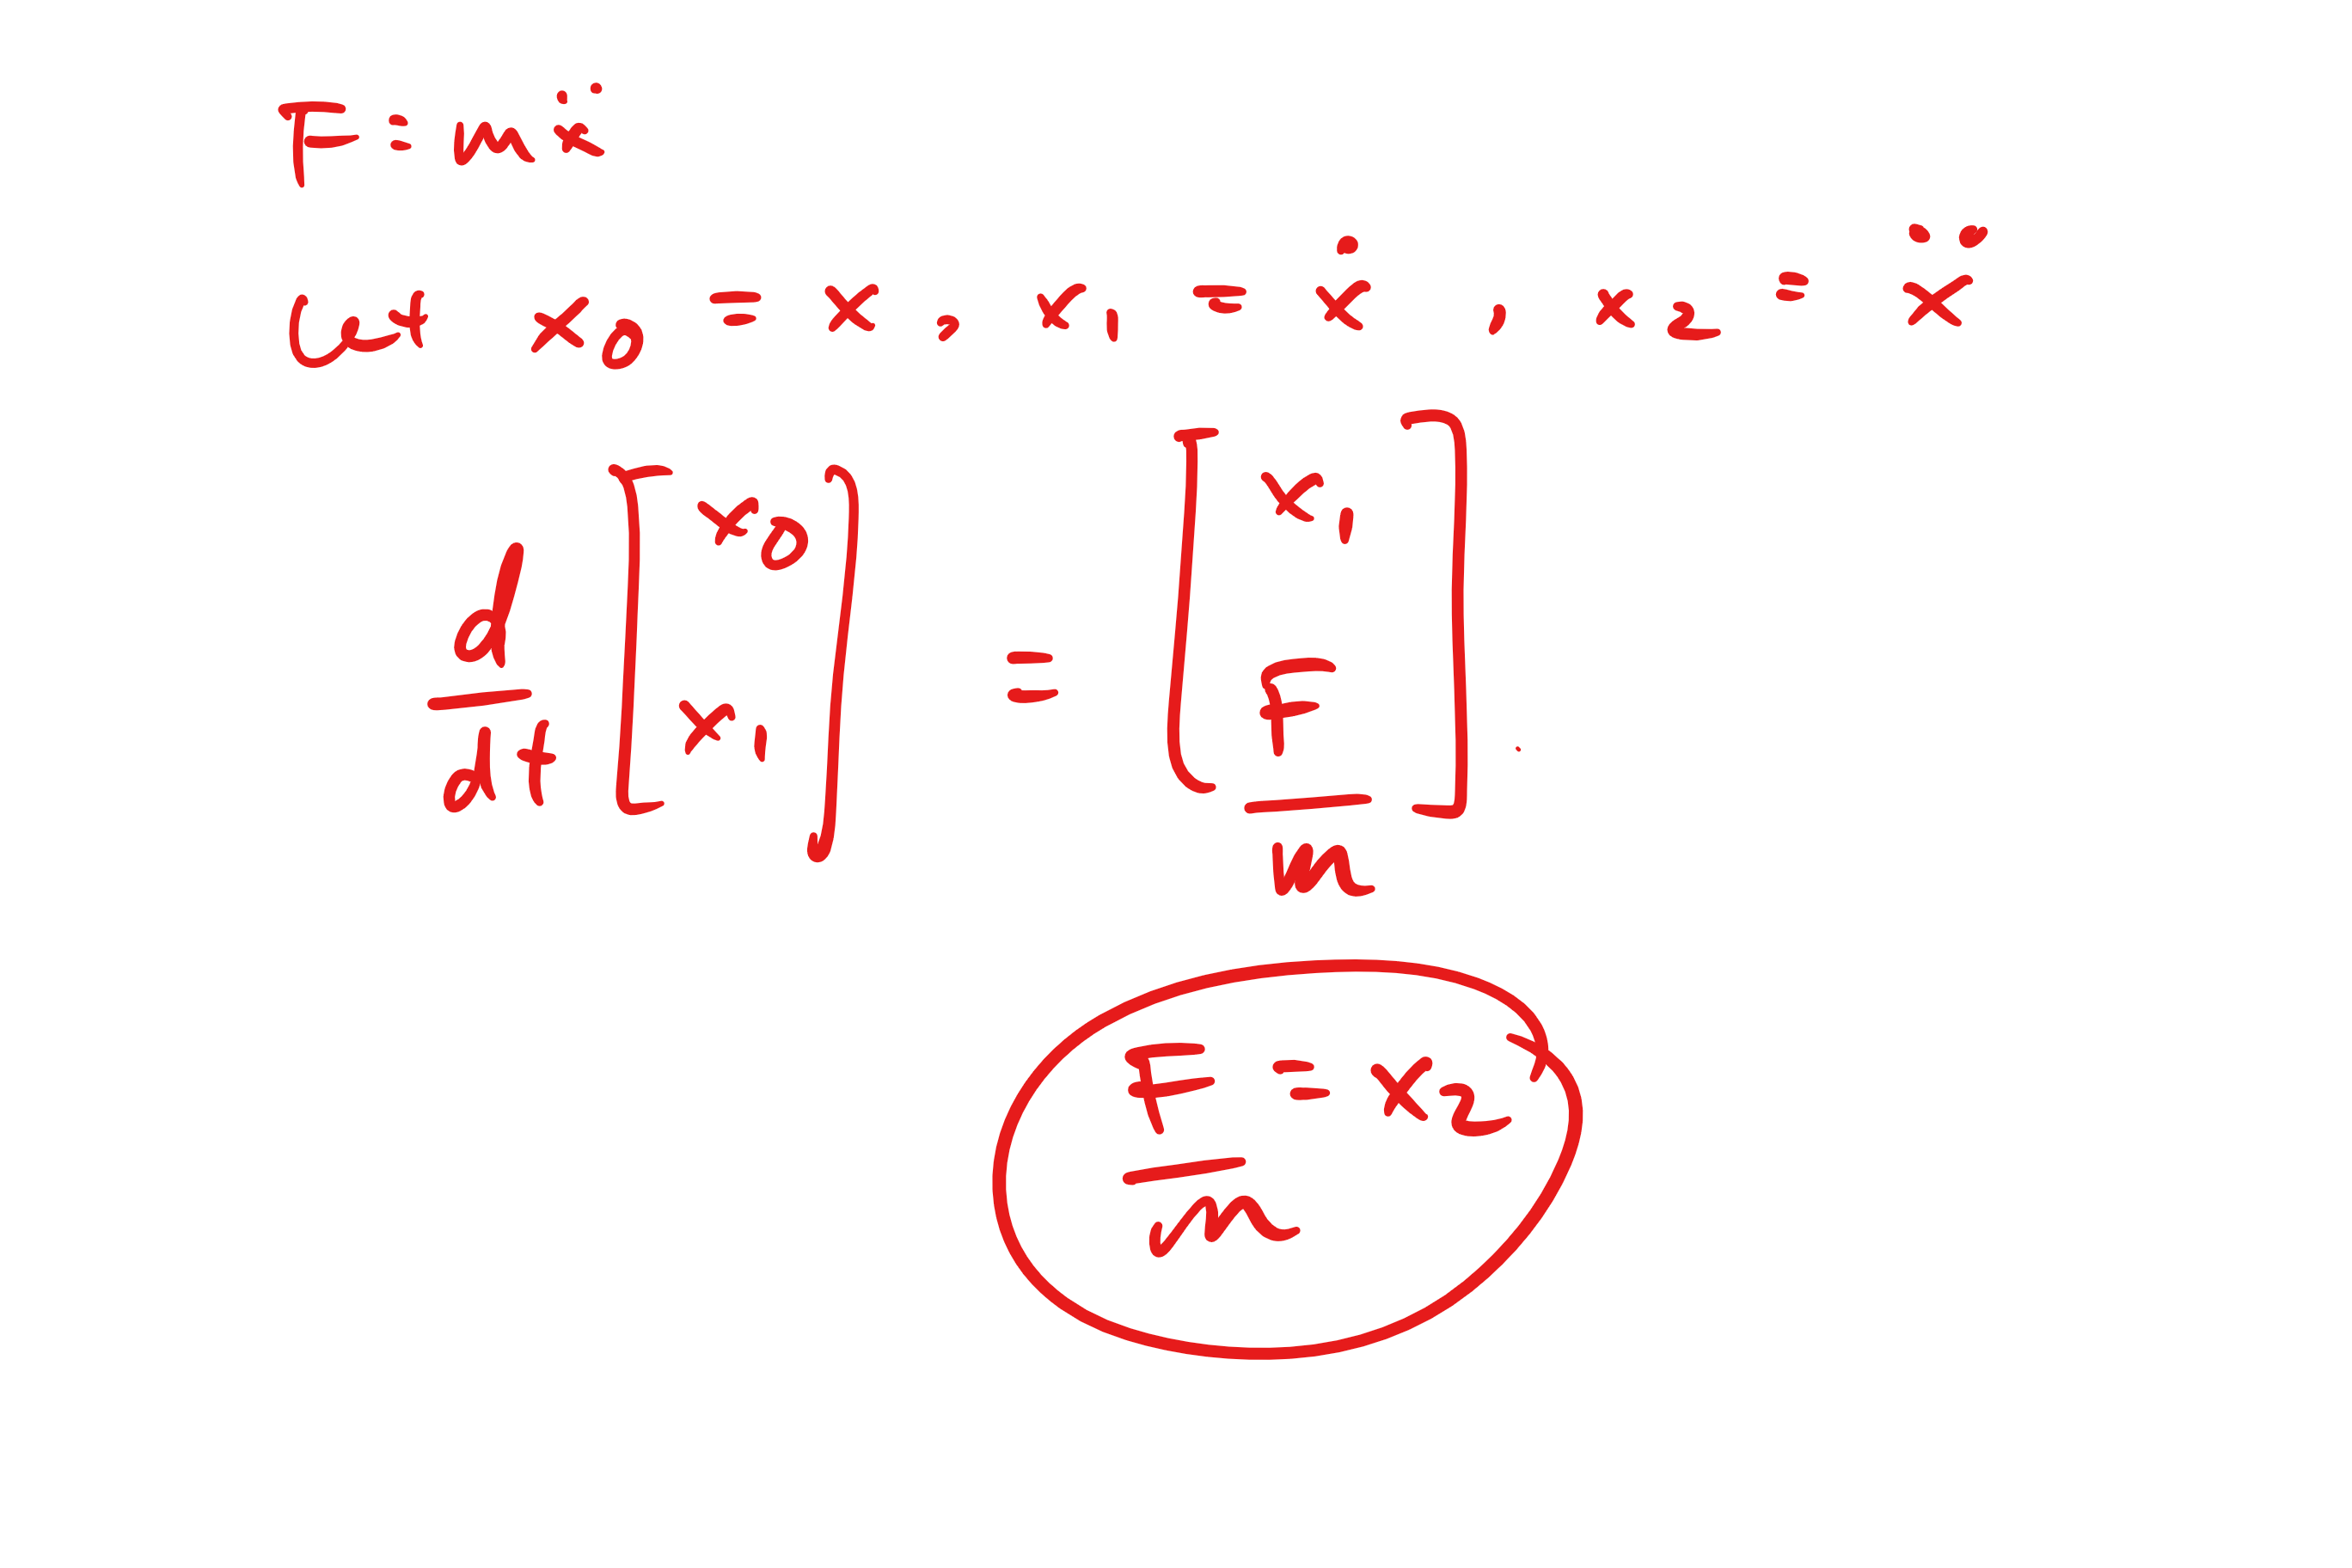 F = mẍ
Let x₀ = x, x₁ = ẋ, x₂ = ẍ
d/dt [x₀ x₁] = [x₁ F/m]
F/m = x₂